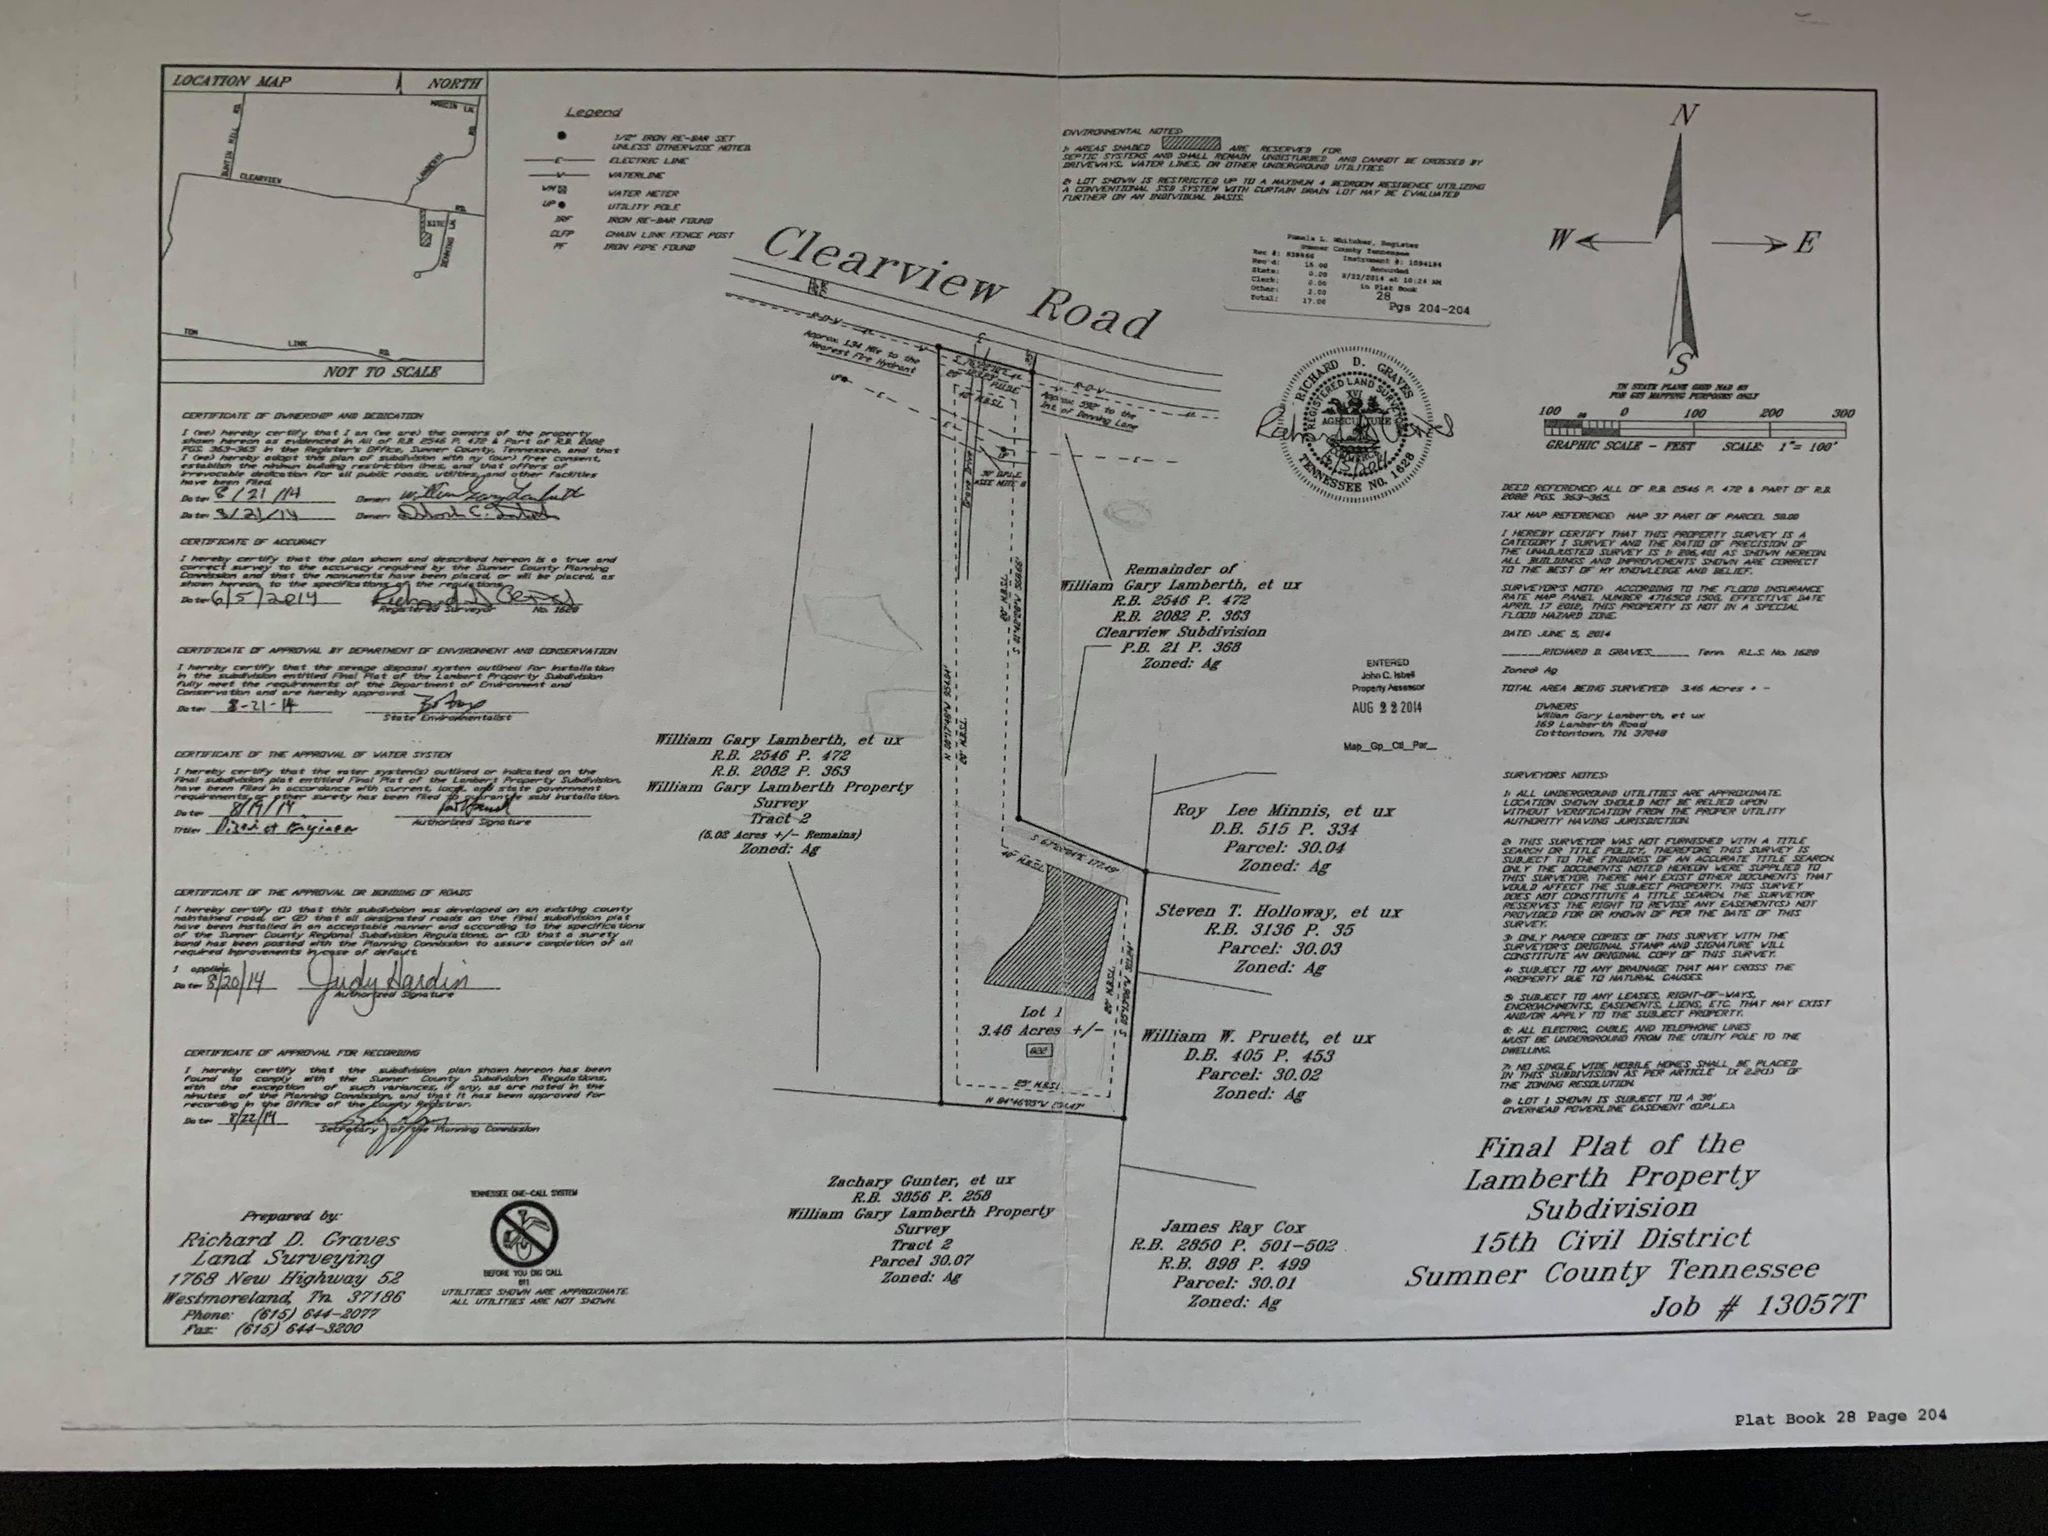 LOCATION MAP
NORTH
BUNTIN MILL RD.
CLEARVIEW
RD.
LAMBERTH
RD.
SITE
DENNING LN.
TOM
LINK
RD.
NOT TO SCALE
Legend
1/2" IRON RE-BAR SET
UNLESS OTHERWISE NOTED.
E
ELECTRIC LINE
WATERLINE
WM
WATER METER
UP
UTILITY POLE
IRF
IRON RE-BAR FOUND
CLFP
CHAIN LINK FENCE POST
PF
IRON PIPE FOUND
ENVIRONMENTAL NOTES:
1: AREAS SHADED ARE RESERVED FOR
SEPTIC SYSTEMS AND SHALL REMAIN UNDISTURBED AND CANNOT BE CROSSED BY
DRIVEWAYS, WATER LINES, OR OTHER UNDERGROUND UTILITIES.
2: LOT SHOWN IS RESTRICTED UP TO A MAXIMUM 4 BEDROOM RESIDENCE UTILIZING
A CONVENTIONAL SSD SYSTEM WITH CURTAIN DRAIN. LOT MAY BE EVALUATED
FURTHER ON AN INDIVIDUAL BASIS.
Register
Sumner County Tennessee
Rec #:
Instrument #: 1094184
Rec'd: 15.00
Recorded
State: 0.00
8/22/2014 at 10:24 AM
Clerk: 0.00
in Plat Book
Other: 2.00
28
Total: 17.00
Pgs 204-204
N
W
E
S
IN STATE PLANE GRID NAD 83
FOR GIS MAPPING PURPOSES ONLY
100 0 100 200 300
GRAPHIC SCALE - FEET SCALE: 1"= 100'
RICHARD D. GRAVES
REGISTERED LAND SURVEYOR
XVI
AGRICULTURE
COMMERCE
TENNESSEE NO. 1628
Clearview Road
R-O-W
Approx. 1.34 Mile to the
Nearest Fire Hydrant
R-O-W
Approx. 592' to the
Int. of Denning Lane
UP
E
25'
40' M.B.S.L.
Gravel Drive
30' O.P.L.E.
*SEE NOTE 8
20' M.B.S.L.
20' M.B.S.L.
40' M.B.S.L.
20' M.B.S.L.
25' M.B.S.L.
Lot 1
3.46 Acres +/-
822
Remainder of
William Gary Lamberth, et ux
R.B. 2546 P. 472
R.B. 2082 P. 363
Clearview Subdivision
P.B. 21 P. 368
Zoned: Ag
ENTERED
John C. Isbell
Property Assessor
AUG 22 2014
Map__Gp__Ctl__Par__
William Gary Lamberth, et ux
R.B. 2546 P. 472
R.B. 2082 P. 363
William Gary Lamberth Property
Survey
Tract 2
(5.02 Acres +/- Remains)
Zoned: Ag
Roy Lee Minnis, et ux
D.B. 515 P. 334
Parcel: 30.04
Zoned: Ag
Steven T. Holloway, et ux
R.B. 3136 P. 35
Parcel: 30.03
Zoned: Ag
William W. Pruett, et ux
D.B. 405 P. 453
Parcel: 30.02
Zoned: Ag
Zachary Gunter, et ux
R.B. 3856 P. 258
William Gary Lamberth Property
Survey
Tract 2
Parcel 30.07
Zoned: Ag
James Ray Cox
R.B. 2850 P. 501-502
R.B. 898 P. 499
Parcel: 30.01
Zoned: Ag
CERTIFICATE OF OWNERSHIP AND DEDICATION
I (we) hereby certify that I am (we are) the owners of the property
shown hereon as evidenced in All of R.B. 2546 P. 472 & Part of R.B. 2082
PGS. 363-365 in the Register's Office, Sumner County, Tennessee, and that
I (we) hereby adopt this plan of subdivision with my (our) free consent,
establish the minimum building restriction lines, and that offers of
irrevocable dedication for all public roads, utilities, and other facilities
have been filed.
Date: 8/21/14 Owner:
Date: 8/21/14 Owner:
CERTIFICATE OF ACCURACY
I hereby certify that the plan shown and described hereon is a true and
correct survey to the accuracy required by the Sumner County Planning
Commission and that the monuments have been placed, or will be placed, as
shown hereon, to the specifications of the regulations.
Date: 6/5/2014
Registered Surveyor No. 1628
CERTIFICATE OF APPROVAL BY DEPARTMENT OF ENVIRONMENT AND CONSERVATION
I hereby certify that the sewage disposal system outlined for installation
in the subdivision entitled Final Plat of the Lambert Property Subdivision
fully meet the requirements of the Department of Environment and
Conservation and are hereby approved.
Date: 8-21-14
State Environmentalist
CERTIFICATE OF THE APPROVAL OF WATER SYSTEM
I hereby certify that the water system(s) outlined or indicated on the
final subdivision plat entitled Final Plat of the Lambert Property Subdivision,
have been filed in accordance with current, local, and state government
requirements, or other surety has been filed to guarantee said installation.
Date: 8/19/14
Authorized Signature
Title: District Engineer
CERTIFICATE OF THE APPROVAL OR BONDING OF ROADS
I hereby certify (1) that this subdivision was developed on an existing county
maintained road, or (2) that all designated roads on the final subdivision plat
have been installed in an acceptable manner and according to the specifications
of the Sumner County Regional Subdivision Regulations, or (3) that a surety
bond has been posted with the Planning Commission to assure completion of all
required improvements in case of default.
1 applies.
Date: 8/20/14 Judy Hardin
Authorized Signature
CERTIFICATE OF APPROVAL FOR RECORDING
I hereby certify that the subdivision plan shown hereon has been
found to comply with the Sumner County Subdivision Regulations,
with the exception of such variances, if any, as are noted in the
minutes of the Planning Commission, and that it has been approved for
recording in the Office of the County Registrar.
Date: 8/22/14
Secretary of the Planning Commission
Prepared by:
Richard D. Graves
Land Surveying
1768 New Highway 52
Westmoreland, Tn. 37186
Phone: (615) 644-2077
Fax: (615) 644-3200
TENNESSEE ONE-CALL SYSTEM
BEFORE YOU DIG CALL
811
UTILITIES SHOWN ARE APPROXIMATE.
ALL UTILITIES ARE NOT SHOWN.
DEED REFERENCE: ALL OF R.B. 2546 P. 472 & PART OF R.B.
2082 PGS. 363-365.
TAX MAP REFERENCE: MAP 37 PART OF PARCEL
I HEREBY CERTIFY THAT THIS PROPERTY SURVEY IS A
CATEGORY I SURVEY AND THE RATIO OF PRECISION OF
THE UNADJUSTED SURVEY IS 1: 206,401 AS SHOWN HEREON.
ALL BUILDINGS AND IMPROVEMENTS SHOWN ARE CORRECT
TO THE BEST OF MY KNOWLEDGE AND BELIEF.
SURVEYOR'S NOTE: ACCORDING TO THE FLOOD INSURANCE
RATE MAP PANEL NUMBER EFFECTIVE DATE
APRIL 17 2012, THIS PROPERTY IS NOT IN A SPECIAL
FLOOD HAZARD ZONE.
DATE: JUNE 5, 2014
RICHARD D. GRAVES Tenn. R.L.S. No. 1628
Zoned: Ag
TOTAL AREA BEING SURVEYED: 3.46 Acres + -
OWNERS
William Gary Lamberth, et ux
169 Lamberth Road
Cottontown, TN. 37048
SURVEYORS NOTES:
1: ALL UNDERGROUND UTILITIES ARE APPROXIMATE.
LOCATION SHOWN SHOULD NOT BE RELIED UPON
WITHOUT VERIFICATION FROM THE PROPER UTILITY
AUTHORITY HAVING JURISDICTION.
2: THIS SURVEYOR WAS NOT FURNISHED WITH A TITLE
SEARCH OR TITLE POLICY, THEREFORE THIS SURVEY IS
SUBJECT TO THE FINDINGS OF AN ACCURATE TITLE SEARCH.
ONLY THE DOCUMENTS NOTED HEREON WERE SUPPLIED TO
THIS SURVEYOR. THERE MAY EXIST OTHER DOCUMENTS THAT
WOULD AFFECT THE SUBJECT PROPERTY. THIS SURVEY
DOES NOT CONSTITUTE A TITLE SEARCH. THE SURVEYOR
RESERVES THE RIGHT TO REVISE ANY EASEMENT(S) NOT
PROVIDED FOR OR KNOWN OF PER THE DATE OF THIS
SURVEY.
3: ONLY PAPER COPIES OF THIS SURVEY WITH THE
SURVEYOR'S ORIGINAL STAMP AND SIGNATURE WILL
CONSTITUTE AN ORIGINAL COPY OF THIS SURVEY.
4: SUBJECT TO ANY DRAINAGE THAT MAY CROSS THE
PROPERTY DUE TO NATURAL CAUSES.
5: SUBJECT TO ANY LEASES, RIGHT-OF-WAYS,
ENCROACHMENTS, EASEMENTS, LIENS, ETC. THAT MAY EXIST
AND/OR APPLY TO THE SUBJECT PROPERTY.
6: ALL ELECTRIC, CABLE, AND TELEPHONE LINES
MUST BE UNDERGROUND FROM THE UTILITY POLE TO THE
DWELLING.
7: NO SINGLE WIDE MOBILE HOMES SHALL BE PLACED
IN THIS SUBDIVISION AS PER ARTICLE OF
THE ZONING RESOLUTION.
8: LOT 1 SHOWN IS SUBJECT TO A 30'
OVERHEAD POWERLINE EASEMENT (O.P.L.E.)
Final Plat of the
Lamberth Property
Subdivision
15th Civil District
Sumner County Tennessee
Job # 13057T
Plat Book 28 Page 204